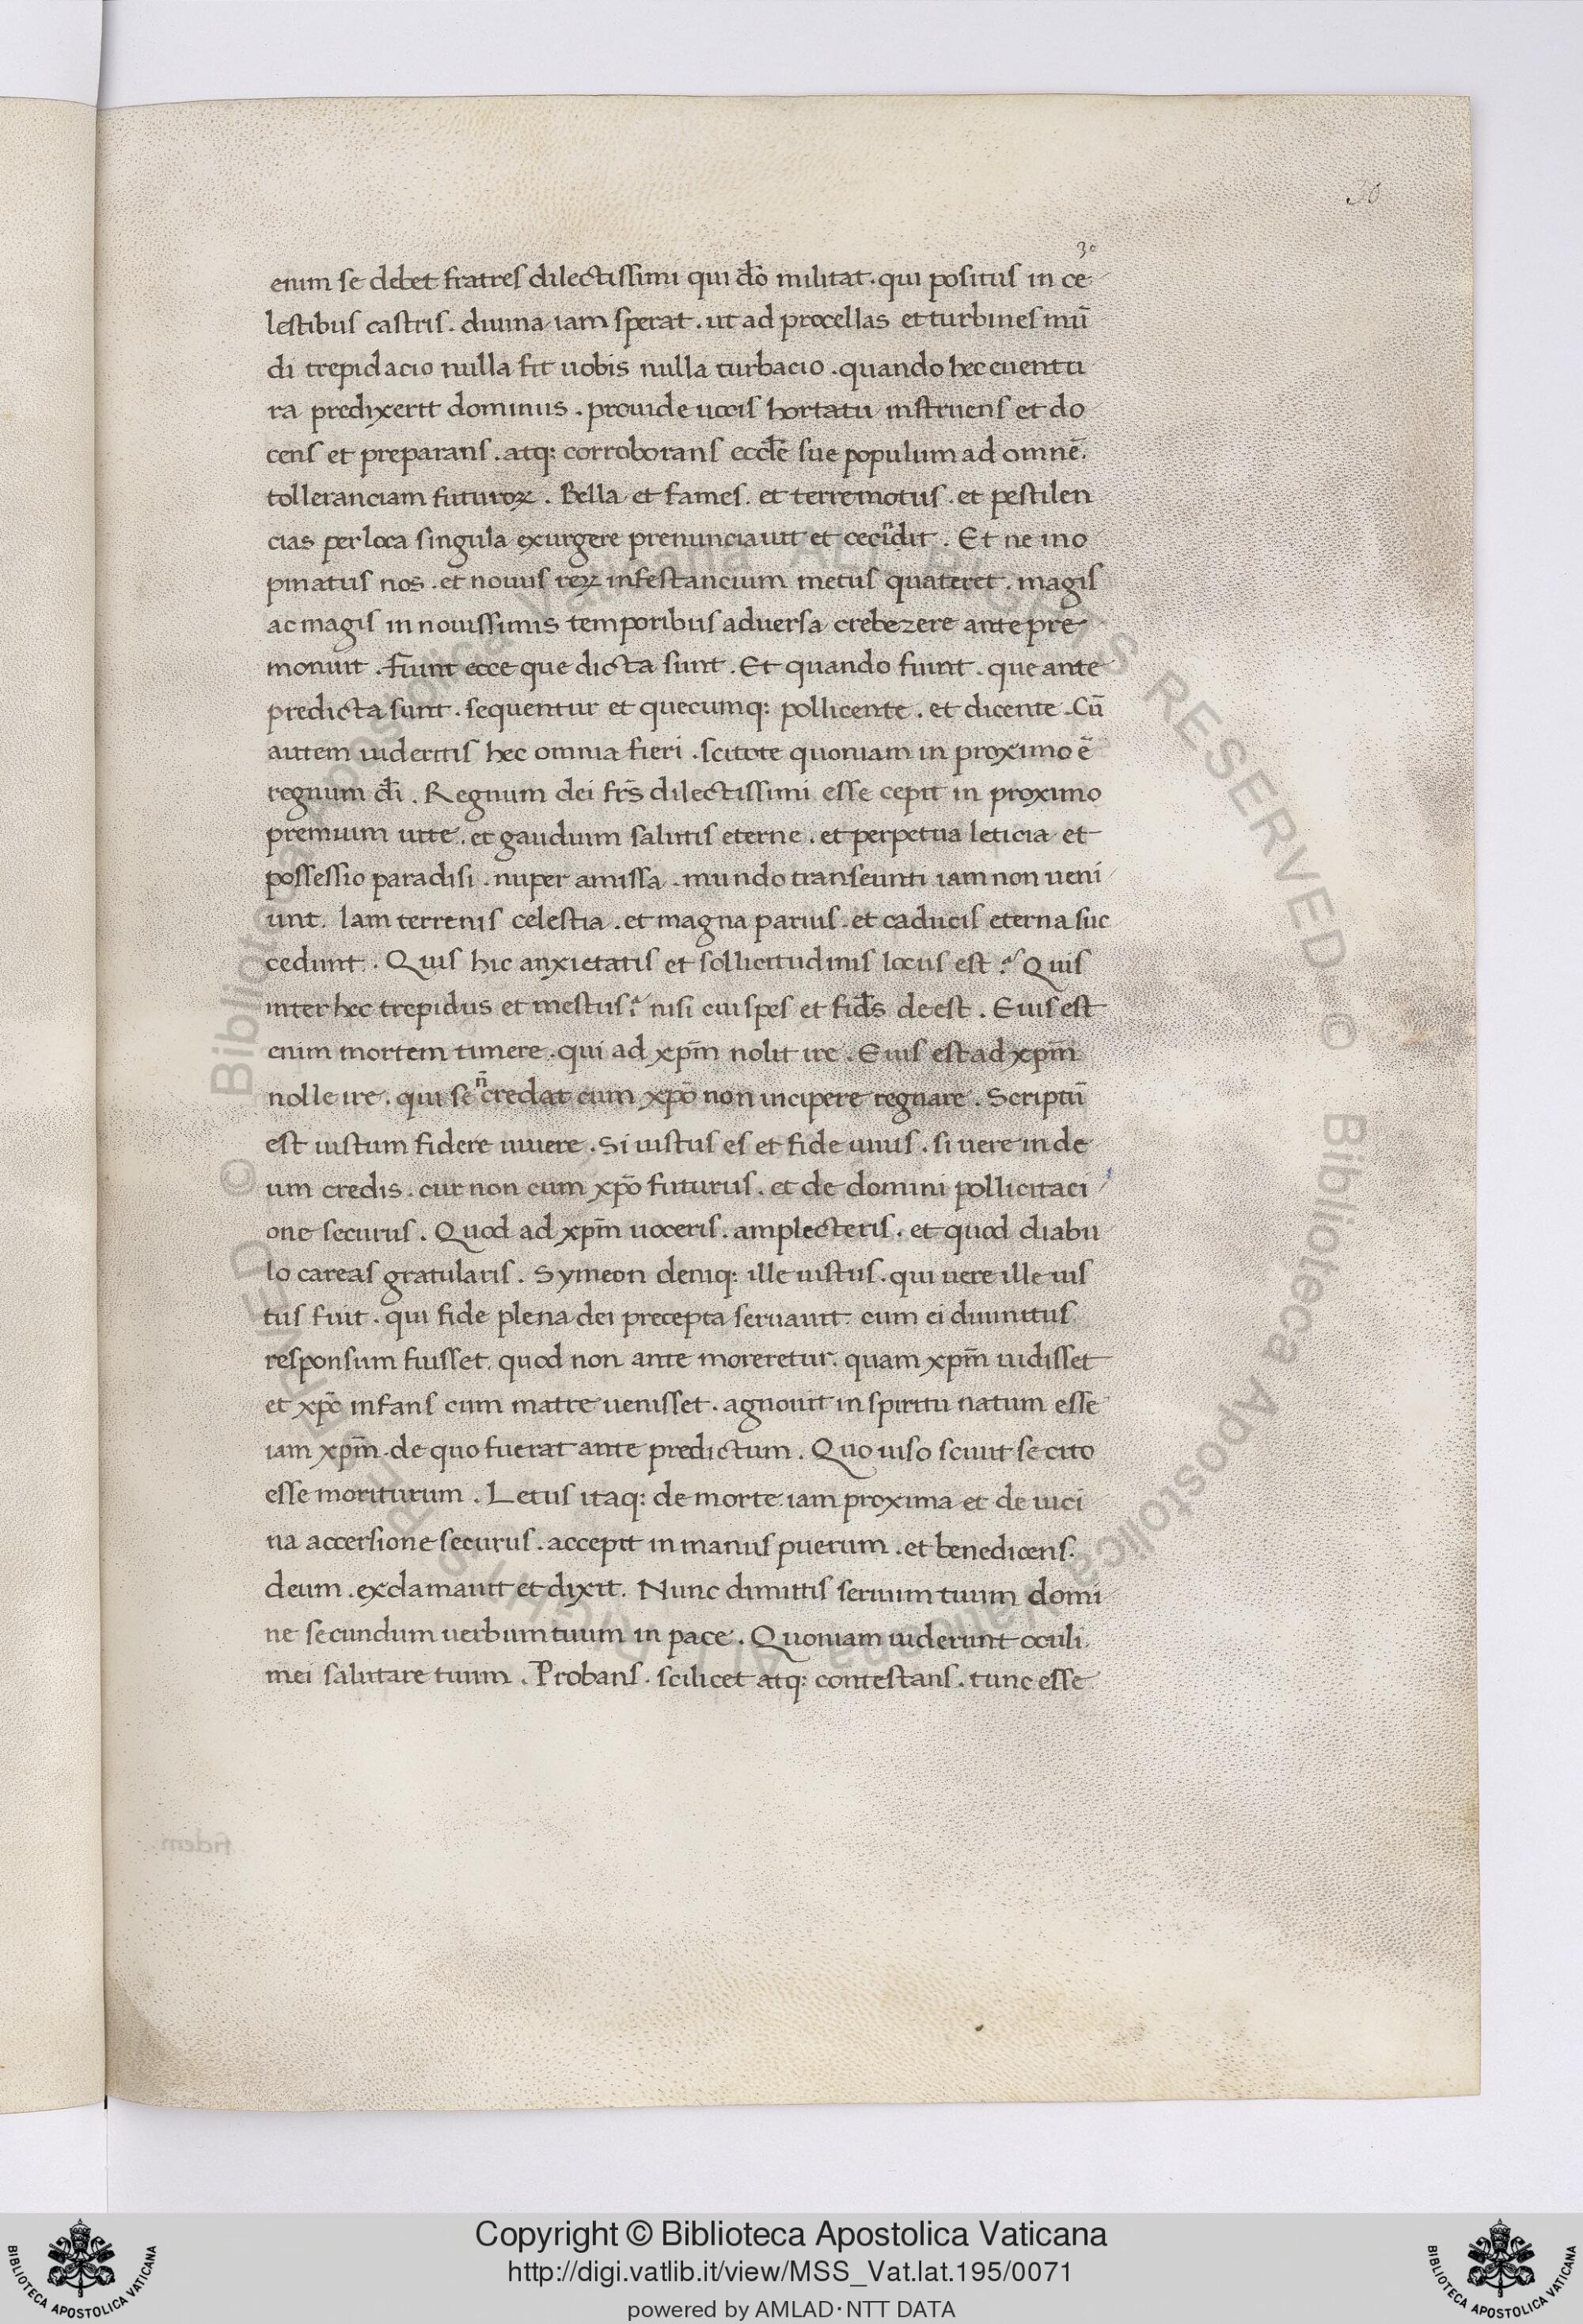 30
30
enim se debet fratres dilectissimi qui d̅o militat. qui positus in ce
lestibus castris. diuina iam sperat. ut ad procellas et turbines mu̅
di trepidacio nulla sit uobis nulla turbacio. quando hec euentu
ra predixerit dominus. prouide uocis hortatu instruens et do
cens et preparans. atq: corroborans eccl̅e sue populum ad omne̅.
tolleranciam futuroꝝ. Bella et fames. et terremotus. et pestilen
cias per loca singula exurgere prenunciauit et cecin̅dit. Et ne ino
pinatus nos. et nouus reꝝ infestancium metus quateret. magis
ac magis in nouissimis temporibus aduersa crebezere ante pre
monuit. fiunt ecce que dicta sunt. Et quando fiunt. que ante
predicta sunt. sequentur et quecumq: pollicente. et dicente. Cu̅
autem uideritis hec omnia fieri. scitote quoniam in proximo e̅
regnum d̅i. Regnum dei fr̅s dilectissimi esse cepit in proximo
premium uite. et gaudium salutis eterne. et perpetua leticia et
possessio paradisi. nuper amissa. mundo transeunti iam non ueni
unt. Iam terrenis celestia. et magna paruis. et caducis eterna suc
cedunt. Quis hic anxietatis et sollicitudinis locus est? Quis
inter hec trepidus et mestus? nisi cui spes et fid̅s deest. Euis est
enim mortem timere. qui ad xpm̅ nolit ire. Euis est ad xpm̅
nolle ire. qui se n̅ credat cum xpo̅ non incipere regnare. Scriptu̅
est iustum fidere uiuere. Si iustus es et fide uiuis. si uere in de
um credis. cur non cum xpo̅ futurus. et de domini pollicitaci
one securus. Quod ad xpm̅ uoceris. amplecteris. et quod diabu
lo careas gratularis. Symeon deniq: ille iustus. qui uere ille ius
tus fuit. qui fide plena dei precepta seruauit. cum ei diuinitus
responsum fuisset. quod non ante moreretur. quam xpm̅ uidisset
et xpc̅ infans cum matre uenisset. agnouit in spiritu natum esse
iam xpm̅. de quo fuerat ante predictum. Quo uiso sciuit se cito
esse moriturum. Letus itaq: de morte iam proxima et de uici
na accersione securus. accepit in manus puerum. et benedicens.
deum. exclamauit et dixit. Nunc dimittis seruum tuum domi
ne secundum uerbum tuum in pace. Quoniam uiderunt oculi
mei salutare tuum. Probans. scilicet atq: contestans. tunc esse
fidem
© Biblioteca Apostolica Vaticana ALL RIGHTS RESERVED © Biblioteca Apostolica Vaticana ALL RIGHTS RESERVED
Copyright © Biblioteca Apostolica Vaticana
http://digi.vatlib.it/view/MSS_Vat.lat.195/0071
powered by AMLAD·NTT DATA
BIBLIOTECA APOSTOLICA VATICANA
BIBLIOTECA APOSTOLICA VATICANA